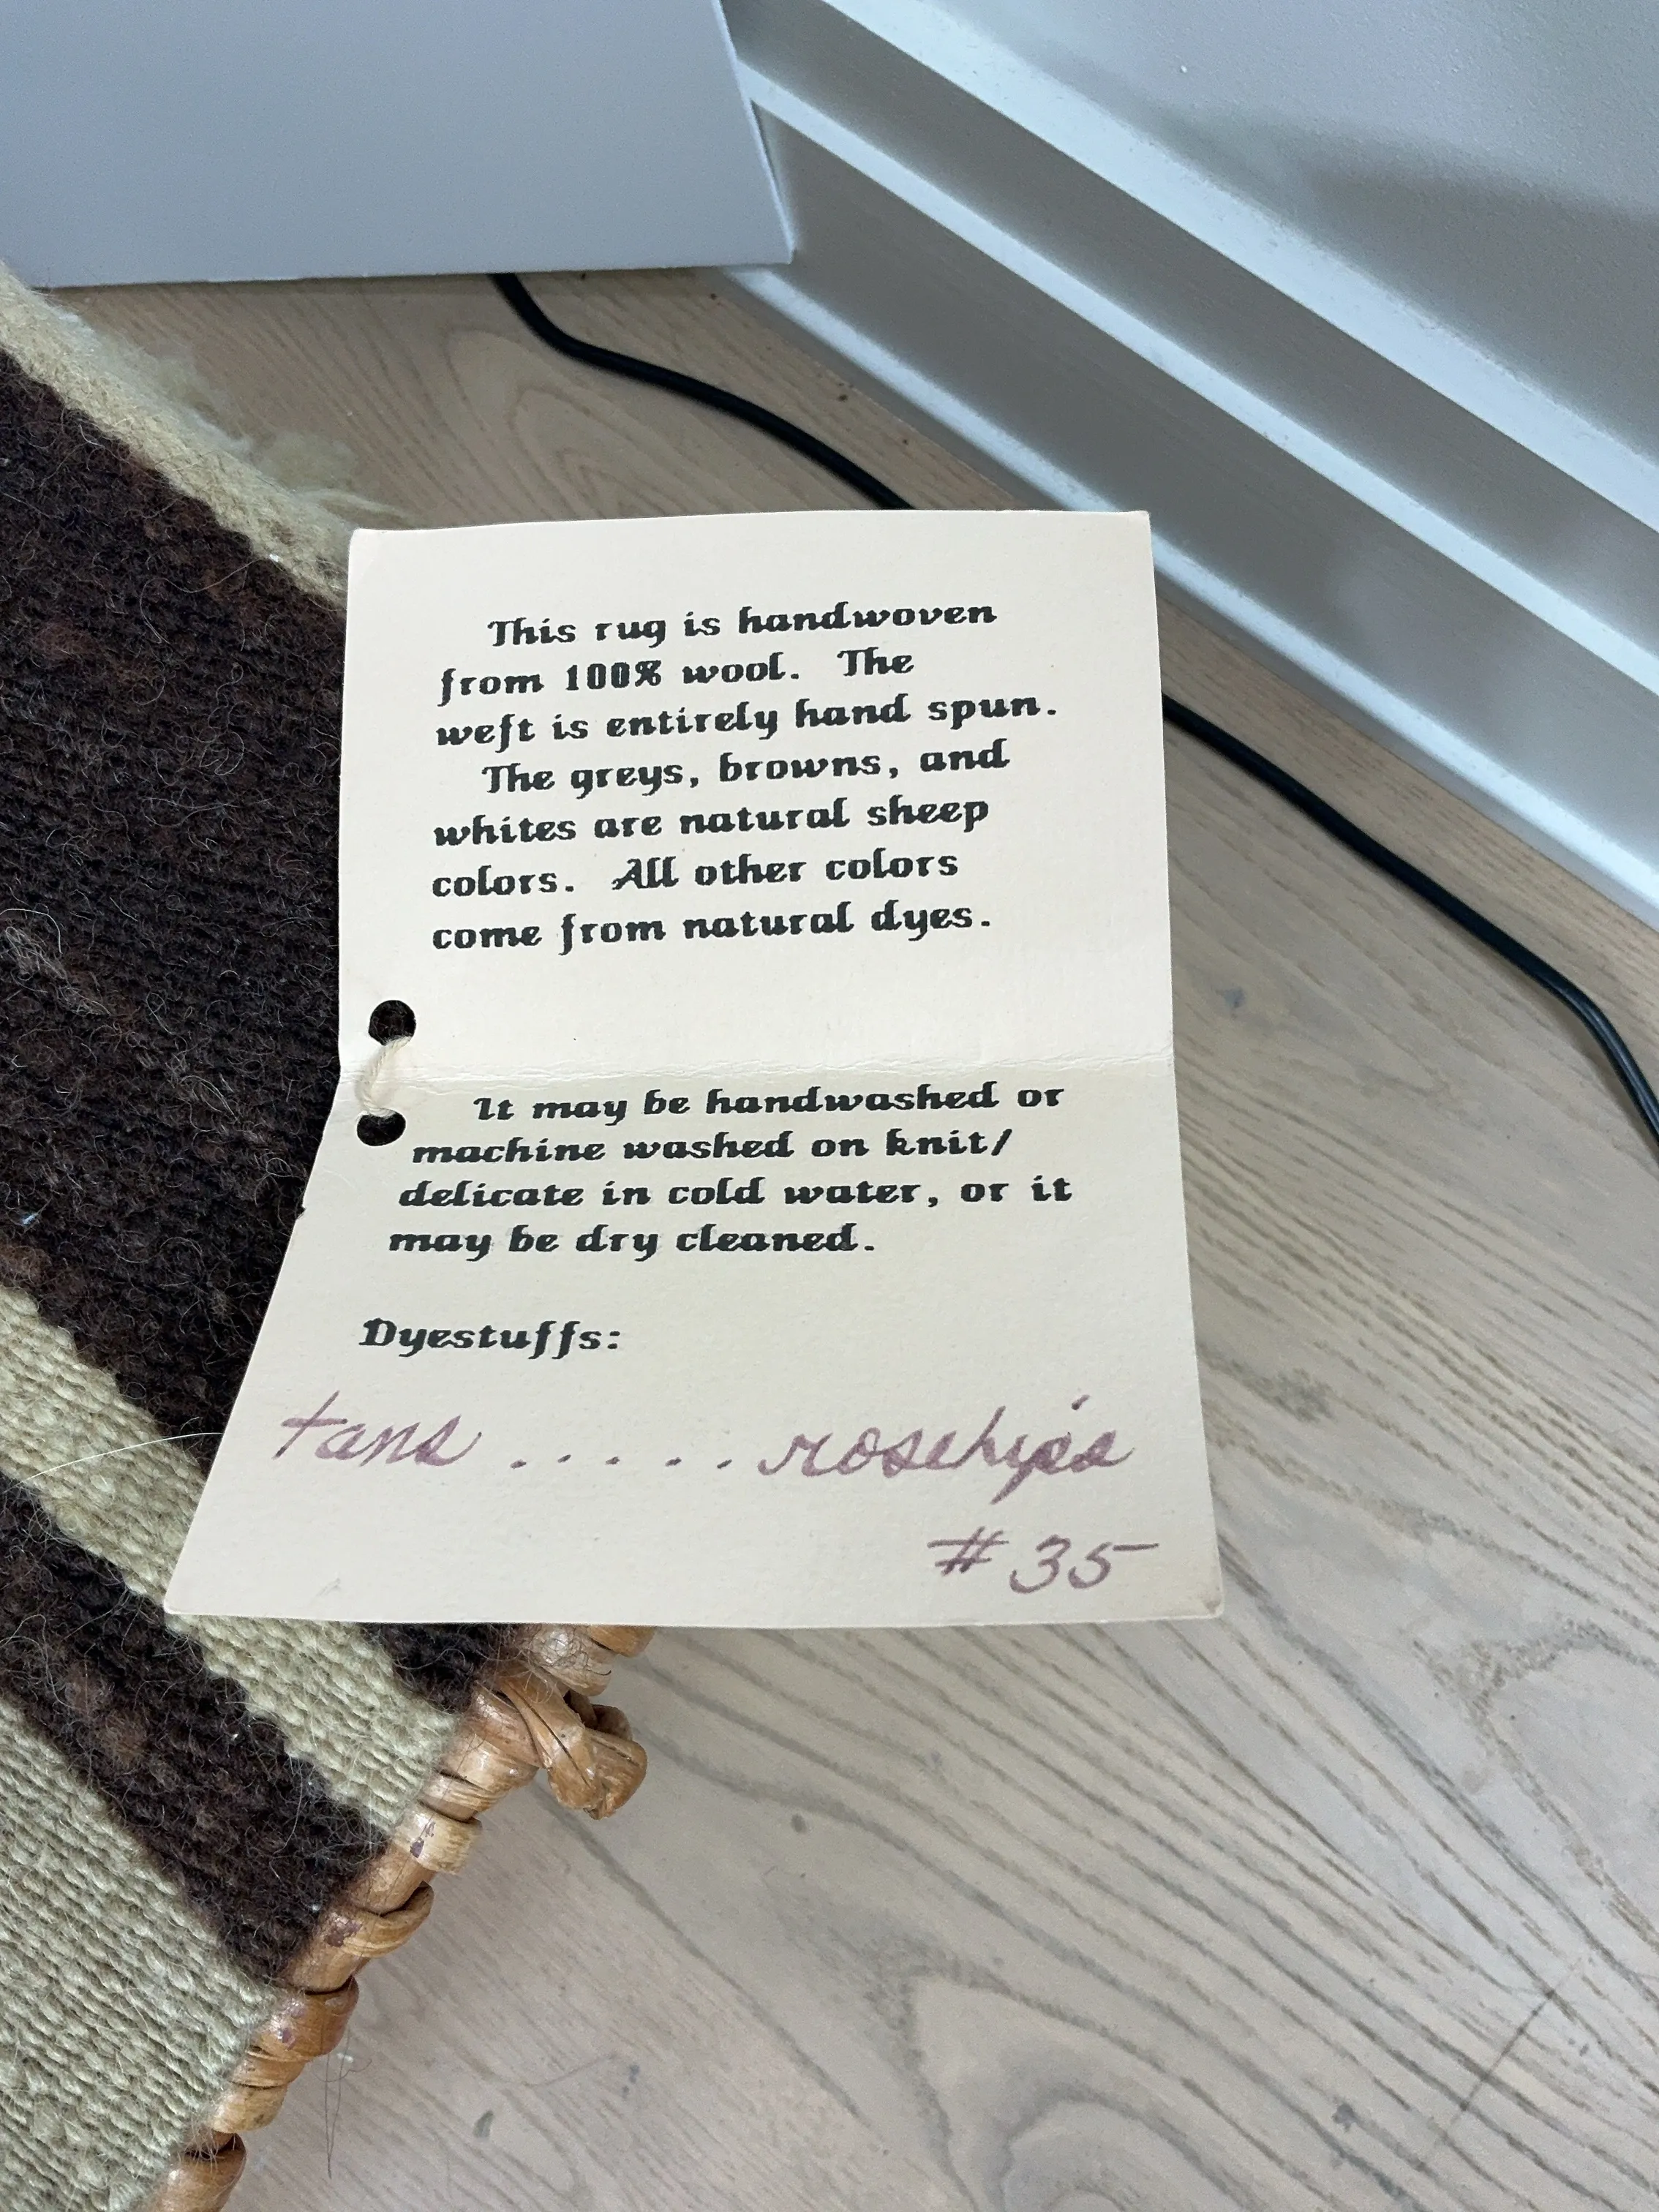 This rug is handwoven
from 100% wool. The
weft is entirely hand spun.
The greys, browns, and
whites are natural sheep
colors. All other colors
come from natural dyes.
It may be handwashed or
machine washed on knit/
delicate in cold water, or it
may be dry cleaned.
Dyestuffs:
tans ..... rosehips
# 35